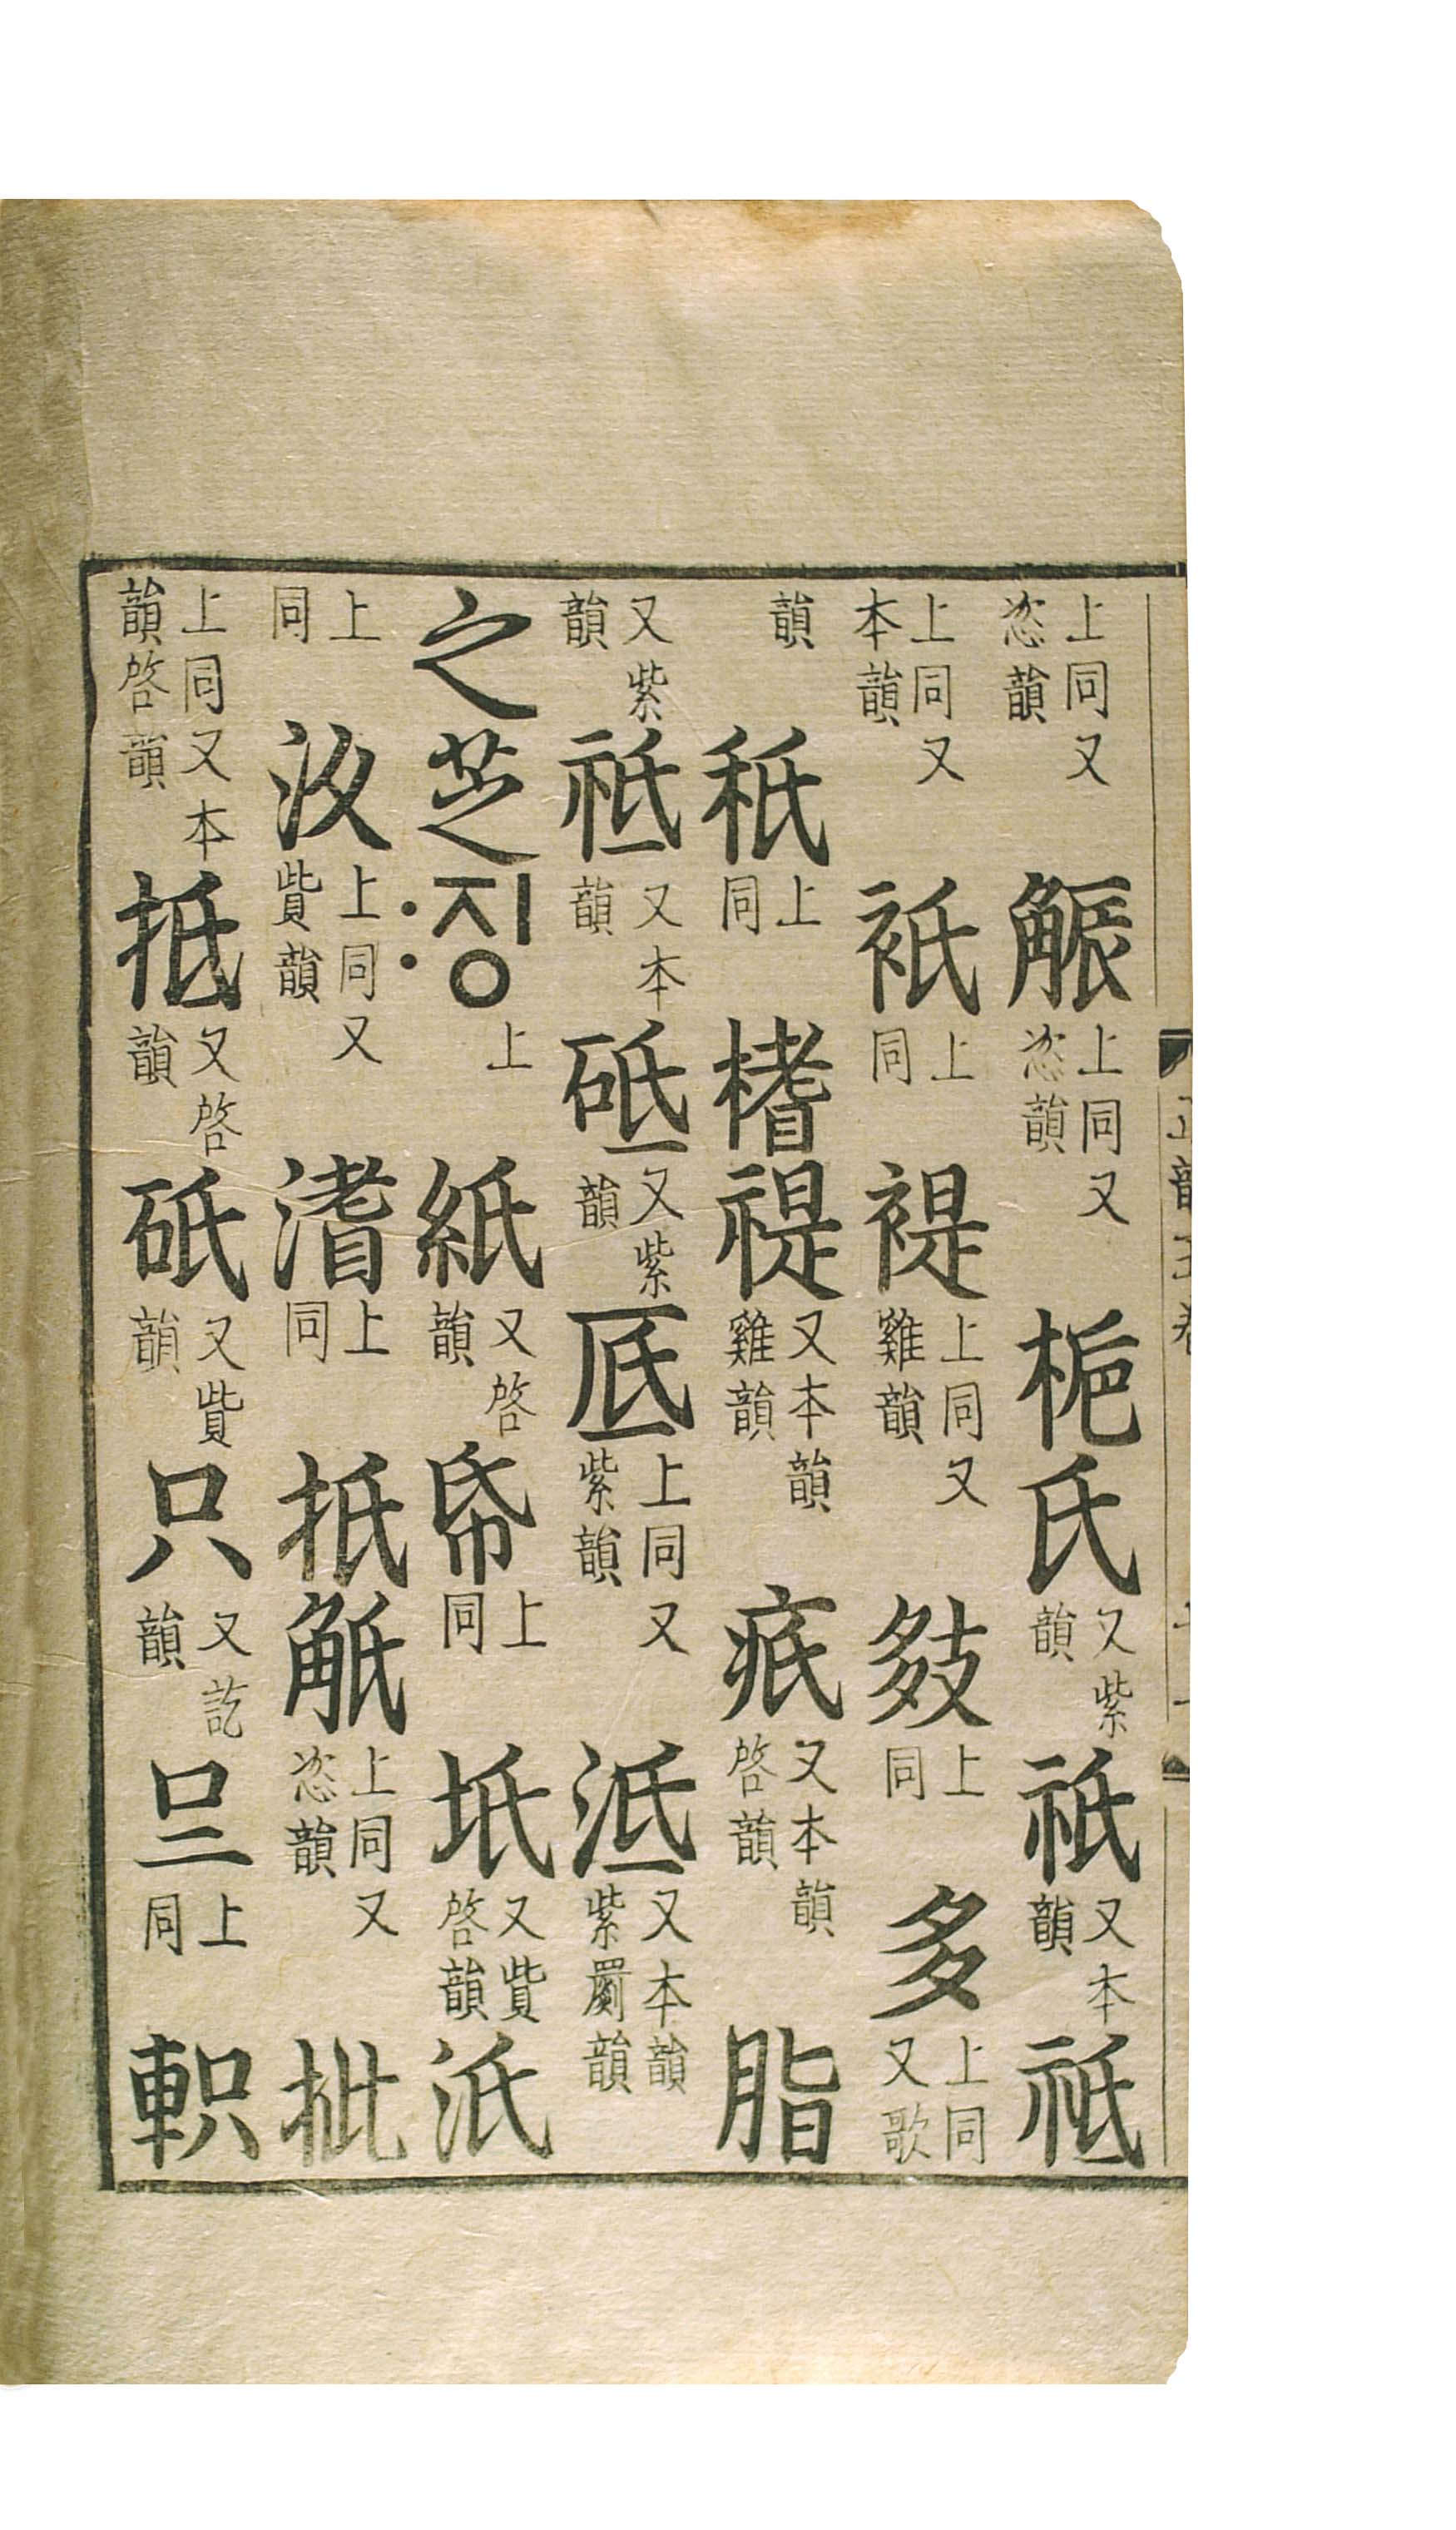 上同又恣韻 𧣨 上同又恣韻 梔氏 又紫韻 祇 又本韻 祗
上同又本韻 衹 上同 褆 上同又雞韻 㩼 上同 多 上同又歌
韻 秖 上同 榰禔 又本韻雞韻 疧 又本韻啓韻 脂
又紫韻 祗 又本韻 砥 又紫韻 厎 上同又紫韻 泜 又本韻紫罽韻
之芝 징 上 紙 又啓韻 帋 上同 坁 又貲啓韻 汦
上同 汥 上同又貲韻 渚 上同 扺觗 上同又恣韻 批
上同又本韻啓韻 抵 又啓韻 砥 又貲韻 只 又訖韻 𠮡 上同 軹